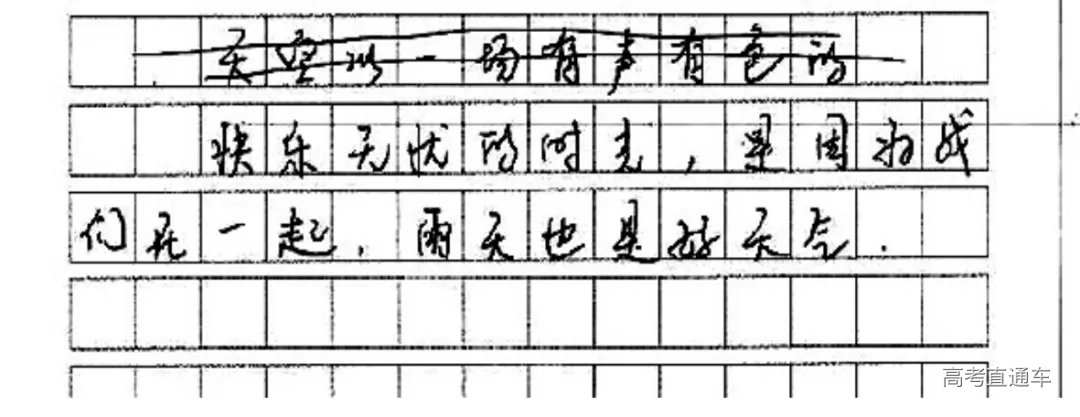 天空以一场有声有色的
快乐无忧的时光，是因为我
们在一起，雨天也是好天气.
高考直通车